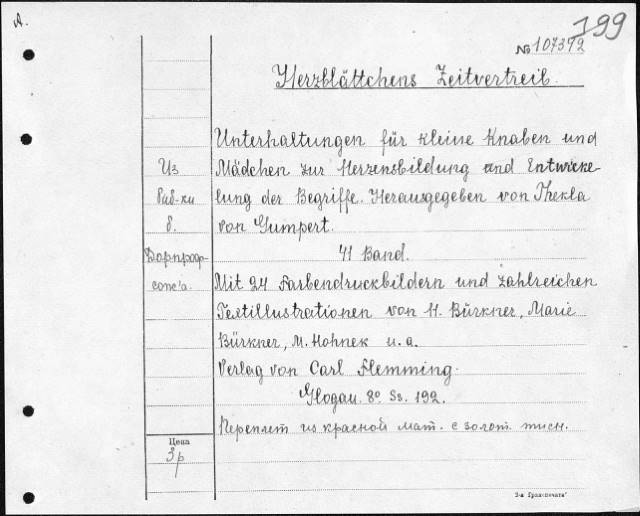 A.
199
№ 107372
Herzblättchens Zeitvertreib.
Unterhaltungen für kleine Knaben und
Mädchen zur Herzensbildung und Entwicke-
lung der Begriffe. Herausgegeben von Thekla
von Gumpert.
41 Band.
Mit 24 Farbendruckbildern und zahlreichen
Textillustrationen von H. Bürkner, Marie
Bürkner, M. Hohnek u. a.
Verlag von Carl Flemming.
Glogau. 8º. Ss. 192.
Переплет из красной мат. с золот. тисн.
Из
биб-ки
б.
Дорпроф-
сожа.
Цена
3 р